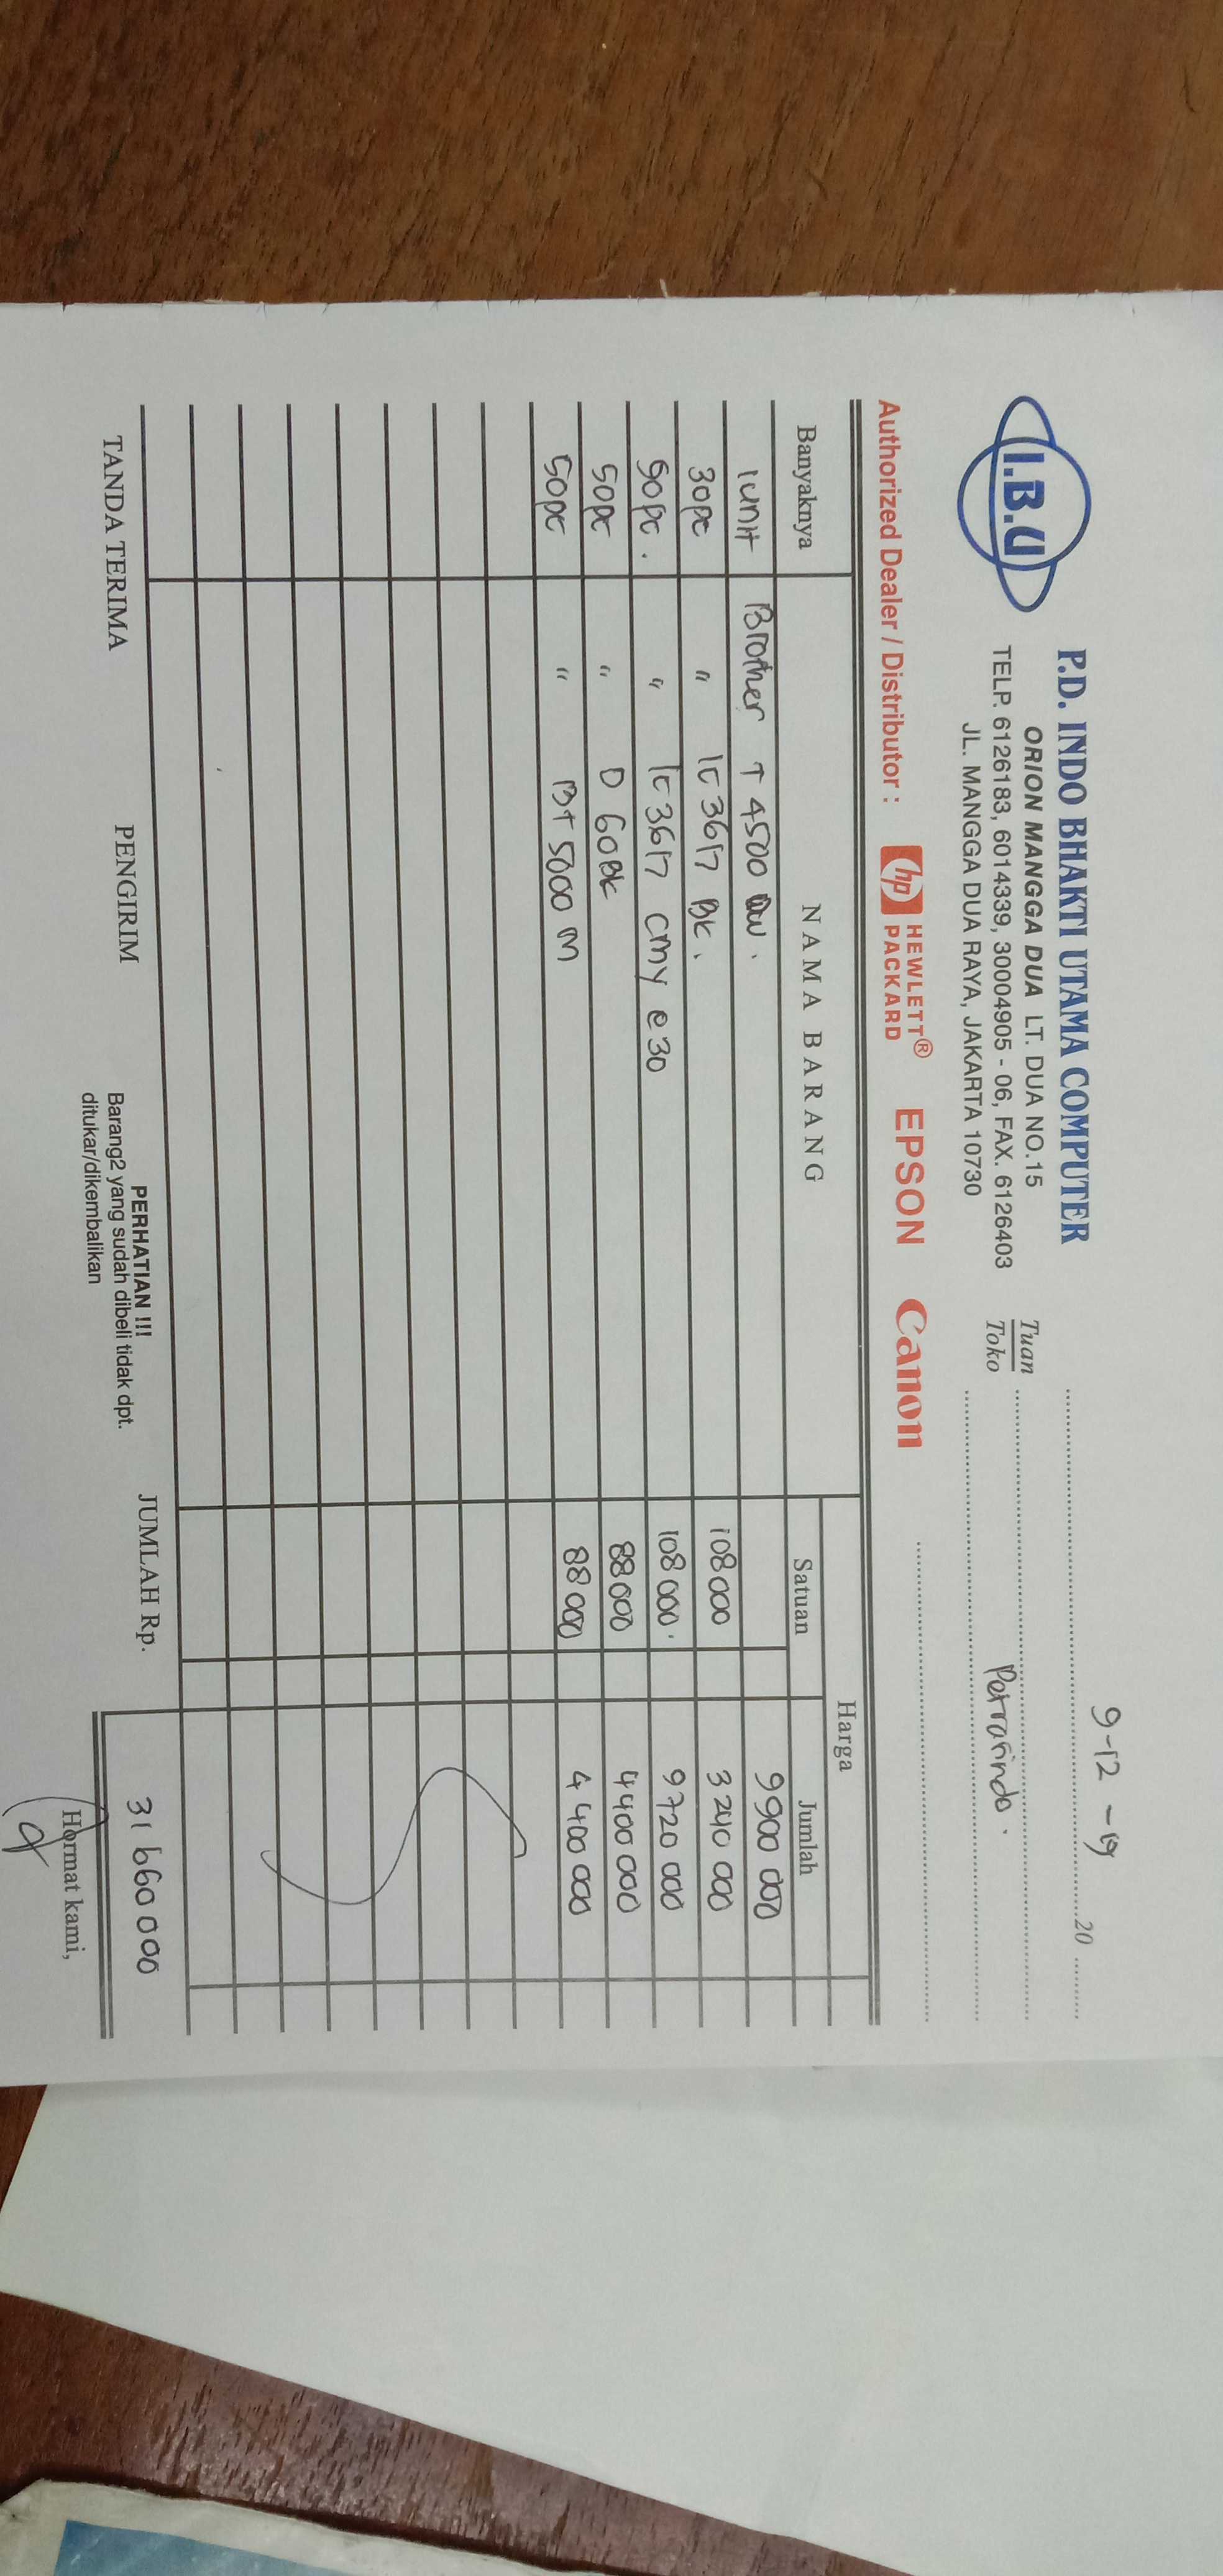 I.B.U
P.D. INDO BHAKTI UTAMA COMPUTER
ORION MANGGA DUA LT. DUA NO.15
TELP. 6126183, 6014339, 30004905 - 06, FAX. 6126403
JL. MANGGA DUA RAYA, JAKARTA 10730
9-12-19 20
Tuan
Toko
Authorized Dealer / Distributor : hp HEWLETT® PACKARD EPSON Canon
Banyaknya NAMA BARANG Harga
Satuan Jumlah
1 unit Brother T 4500 DW. 9900 000
30pc " lc 3617 BK. 108 000 3 240 000
90pc. " lc 3617 CMY @ 30 108 000. 9 720 000
50pc " D 60BK 88 000 4 400 000
50pc " BT 5000 M 88 000 4 400 000
TANDA TERIMA PENGIRIM JUMLAH Rp. 31 660 000
PERHATIAN !!!
Barang2 yang sudah dibeli tidak dpt.
ditukar/dikembalikan
Hormat kami,